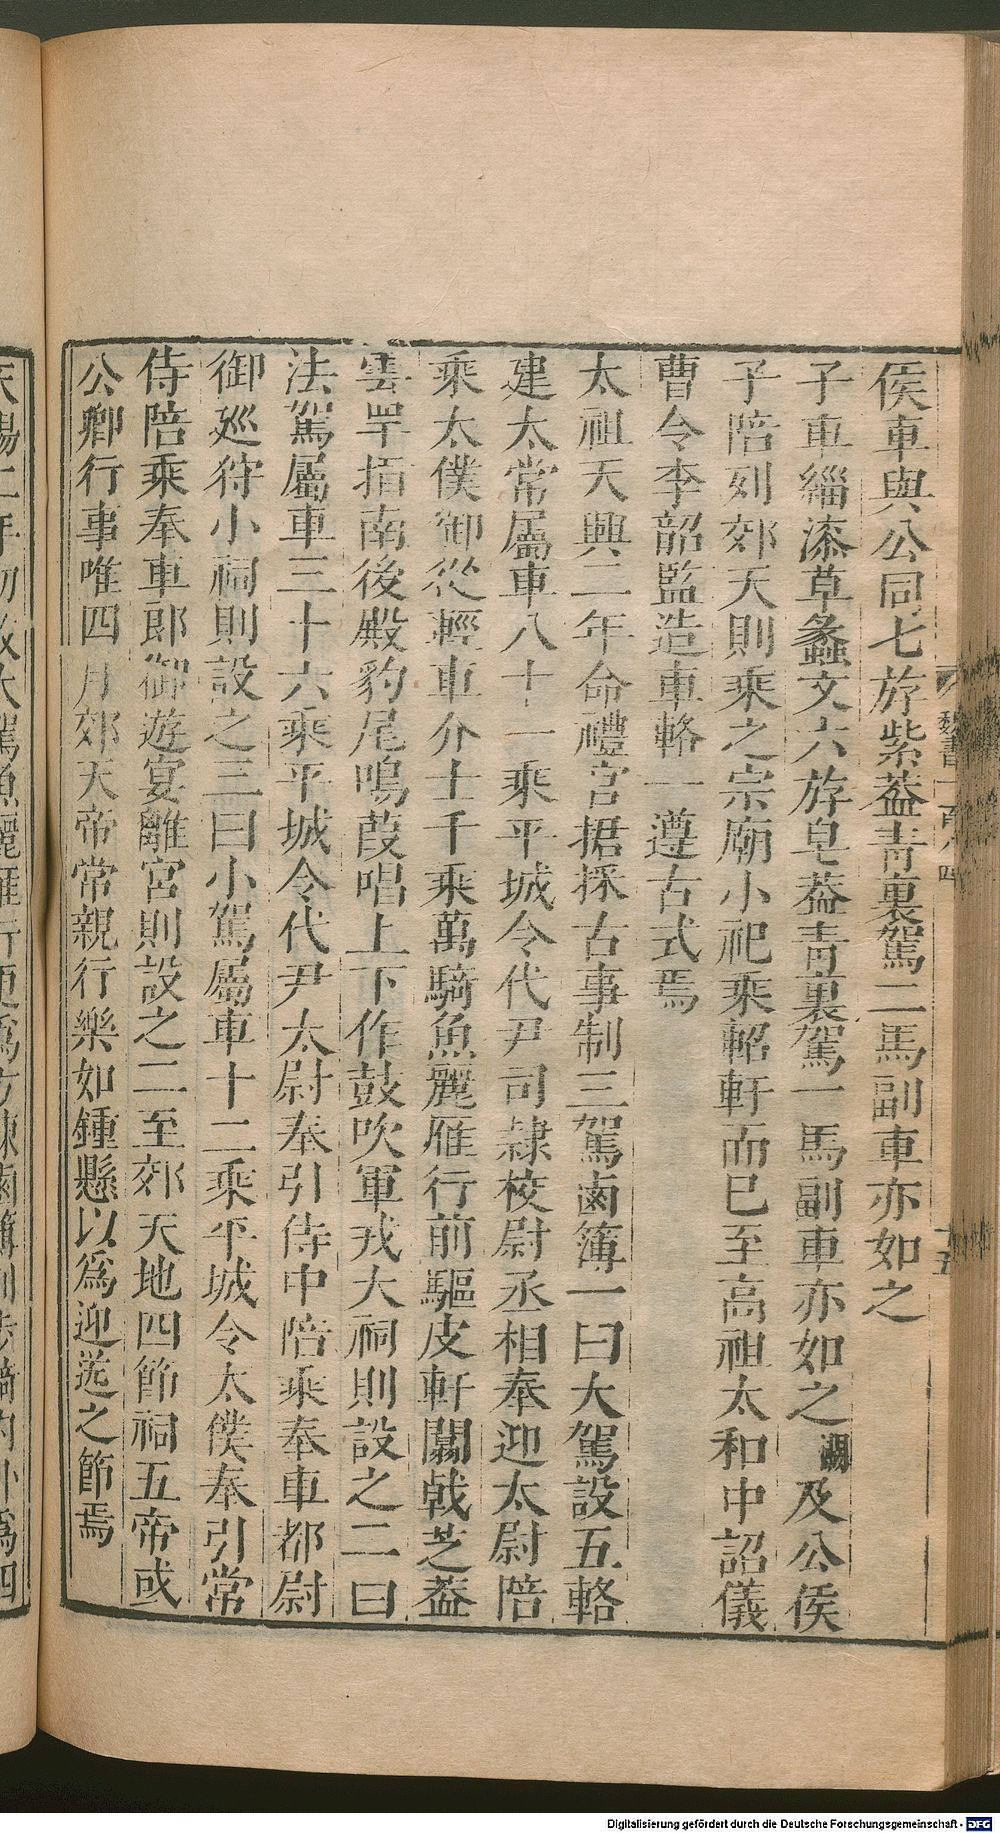 侯車與公同七斿紫蓋青裏駕二馬副車亦如之
子車緇漆草蠡文六斿皁蓋青裏駕一馬副車亦如之 闕 及公侯
子陪列郊天則乘之宗廟小祀乘軺軒而巳至高祖太和中詔儀
曹令李韶監造車輅一遵古式焉
太祖天興二年命禮官捃採古事制三駕鹵簿一曰大駕設五輅
建太常屬車八十一乘平城令代尹司隷校尉丞相奉迎太尉陪
乘太僕御從輕車介士千乘萬騎魚麗雁行前驅皮軒闟戟芝蓋
雲罕指南後殿豹尾鳴葭唱上下作鼓吹軍戎大祠則設之二曰
法駕屬車三十六乘平城令代尹太尉奉引侍中陪乘奉車都尉
御廵狩小祠則設之三曰小駕屬車十二乘平城令太僕奉引常
侍陪乘奉車郎御遊宴離宮則設之二至郊天地四節祠五帝或
公卿行事唯四月郊天帝常親行樂如鍾懸以爲迎送之節焉
魏書一百八四
十五
Digitalisierung gefördert durch die Deutsche Forschungsgemeinschaft - DFG